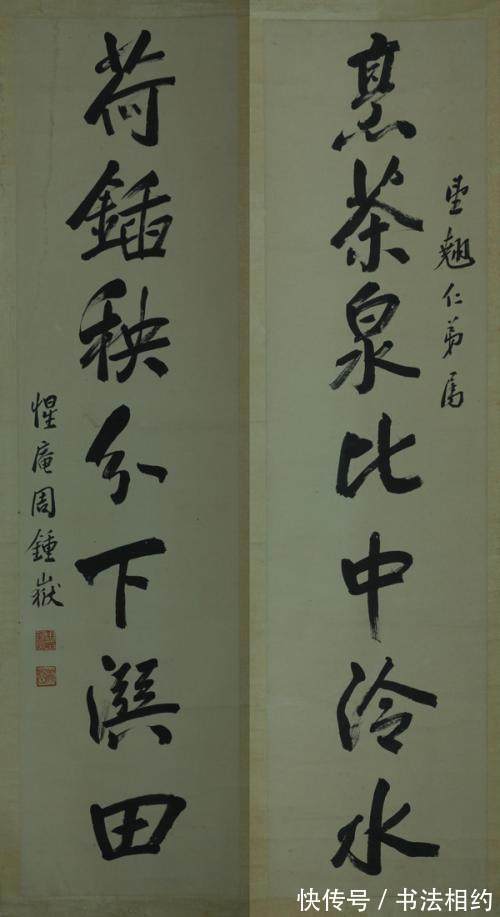 翹仁弟属
烹茶泉比中泠水
荷鍤秧分下潠田
惺庵周鍾嶽
快传号 / 书法相约